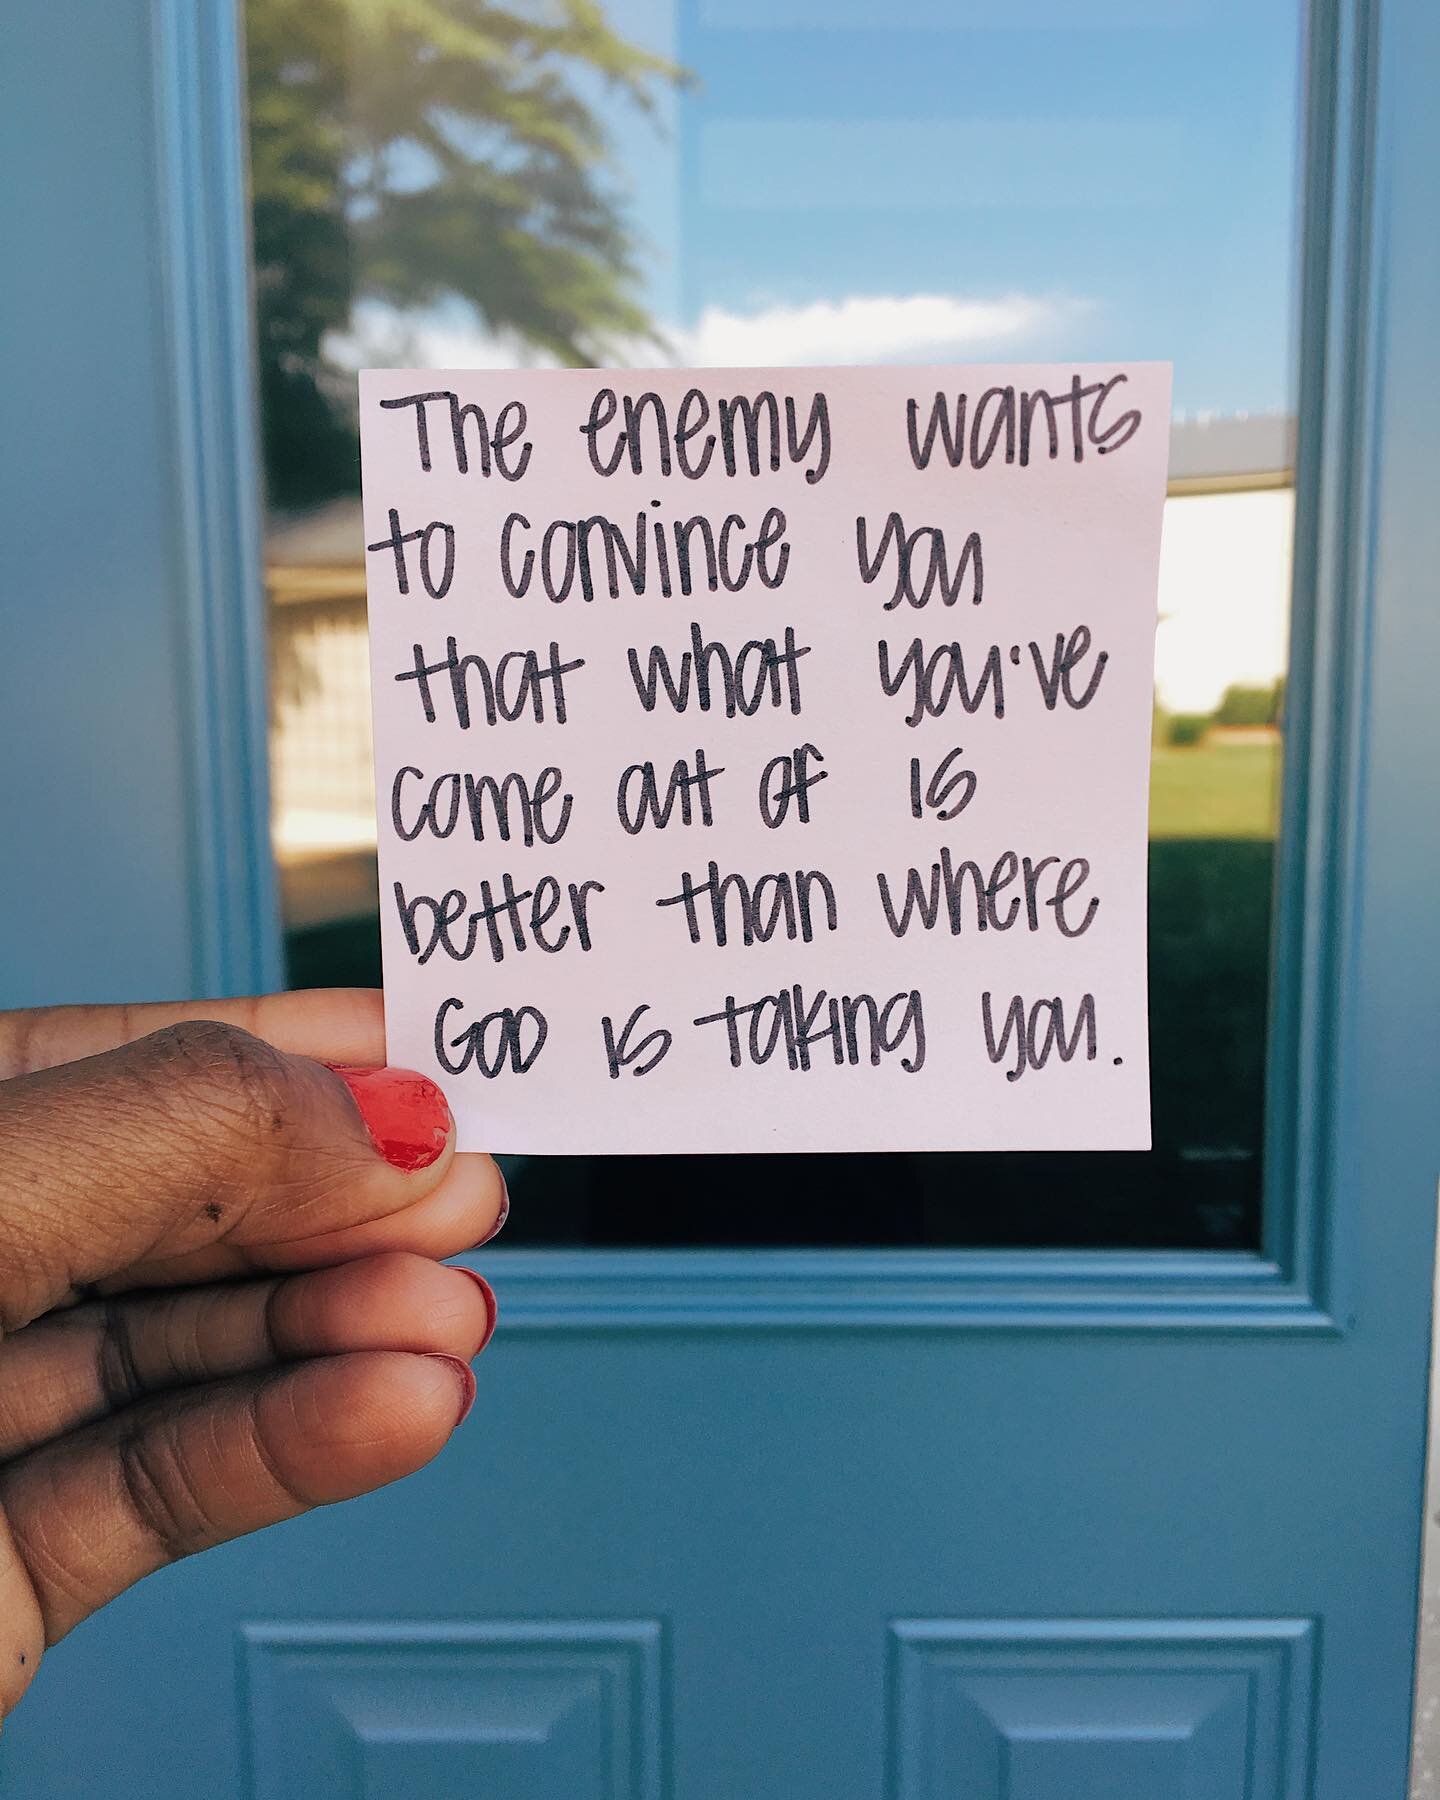 The enemy wants
to convince you
that what you've
come out of is
better than where
God is taking you.